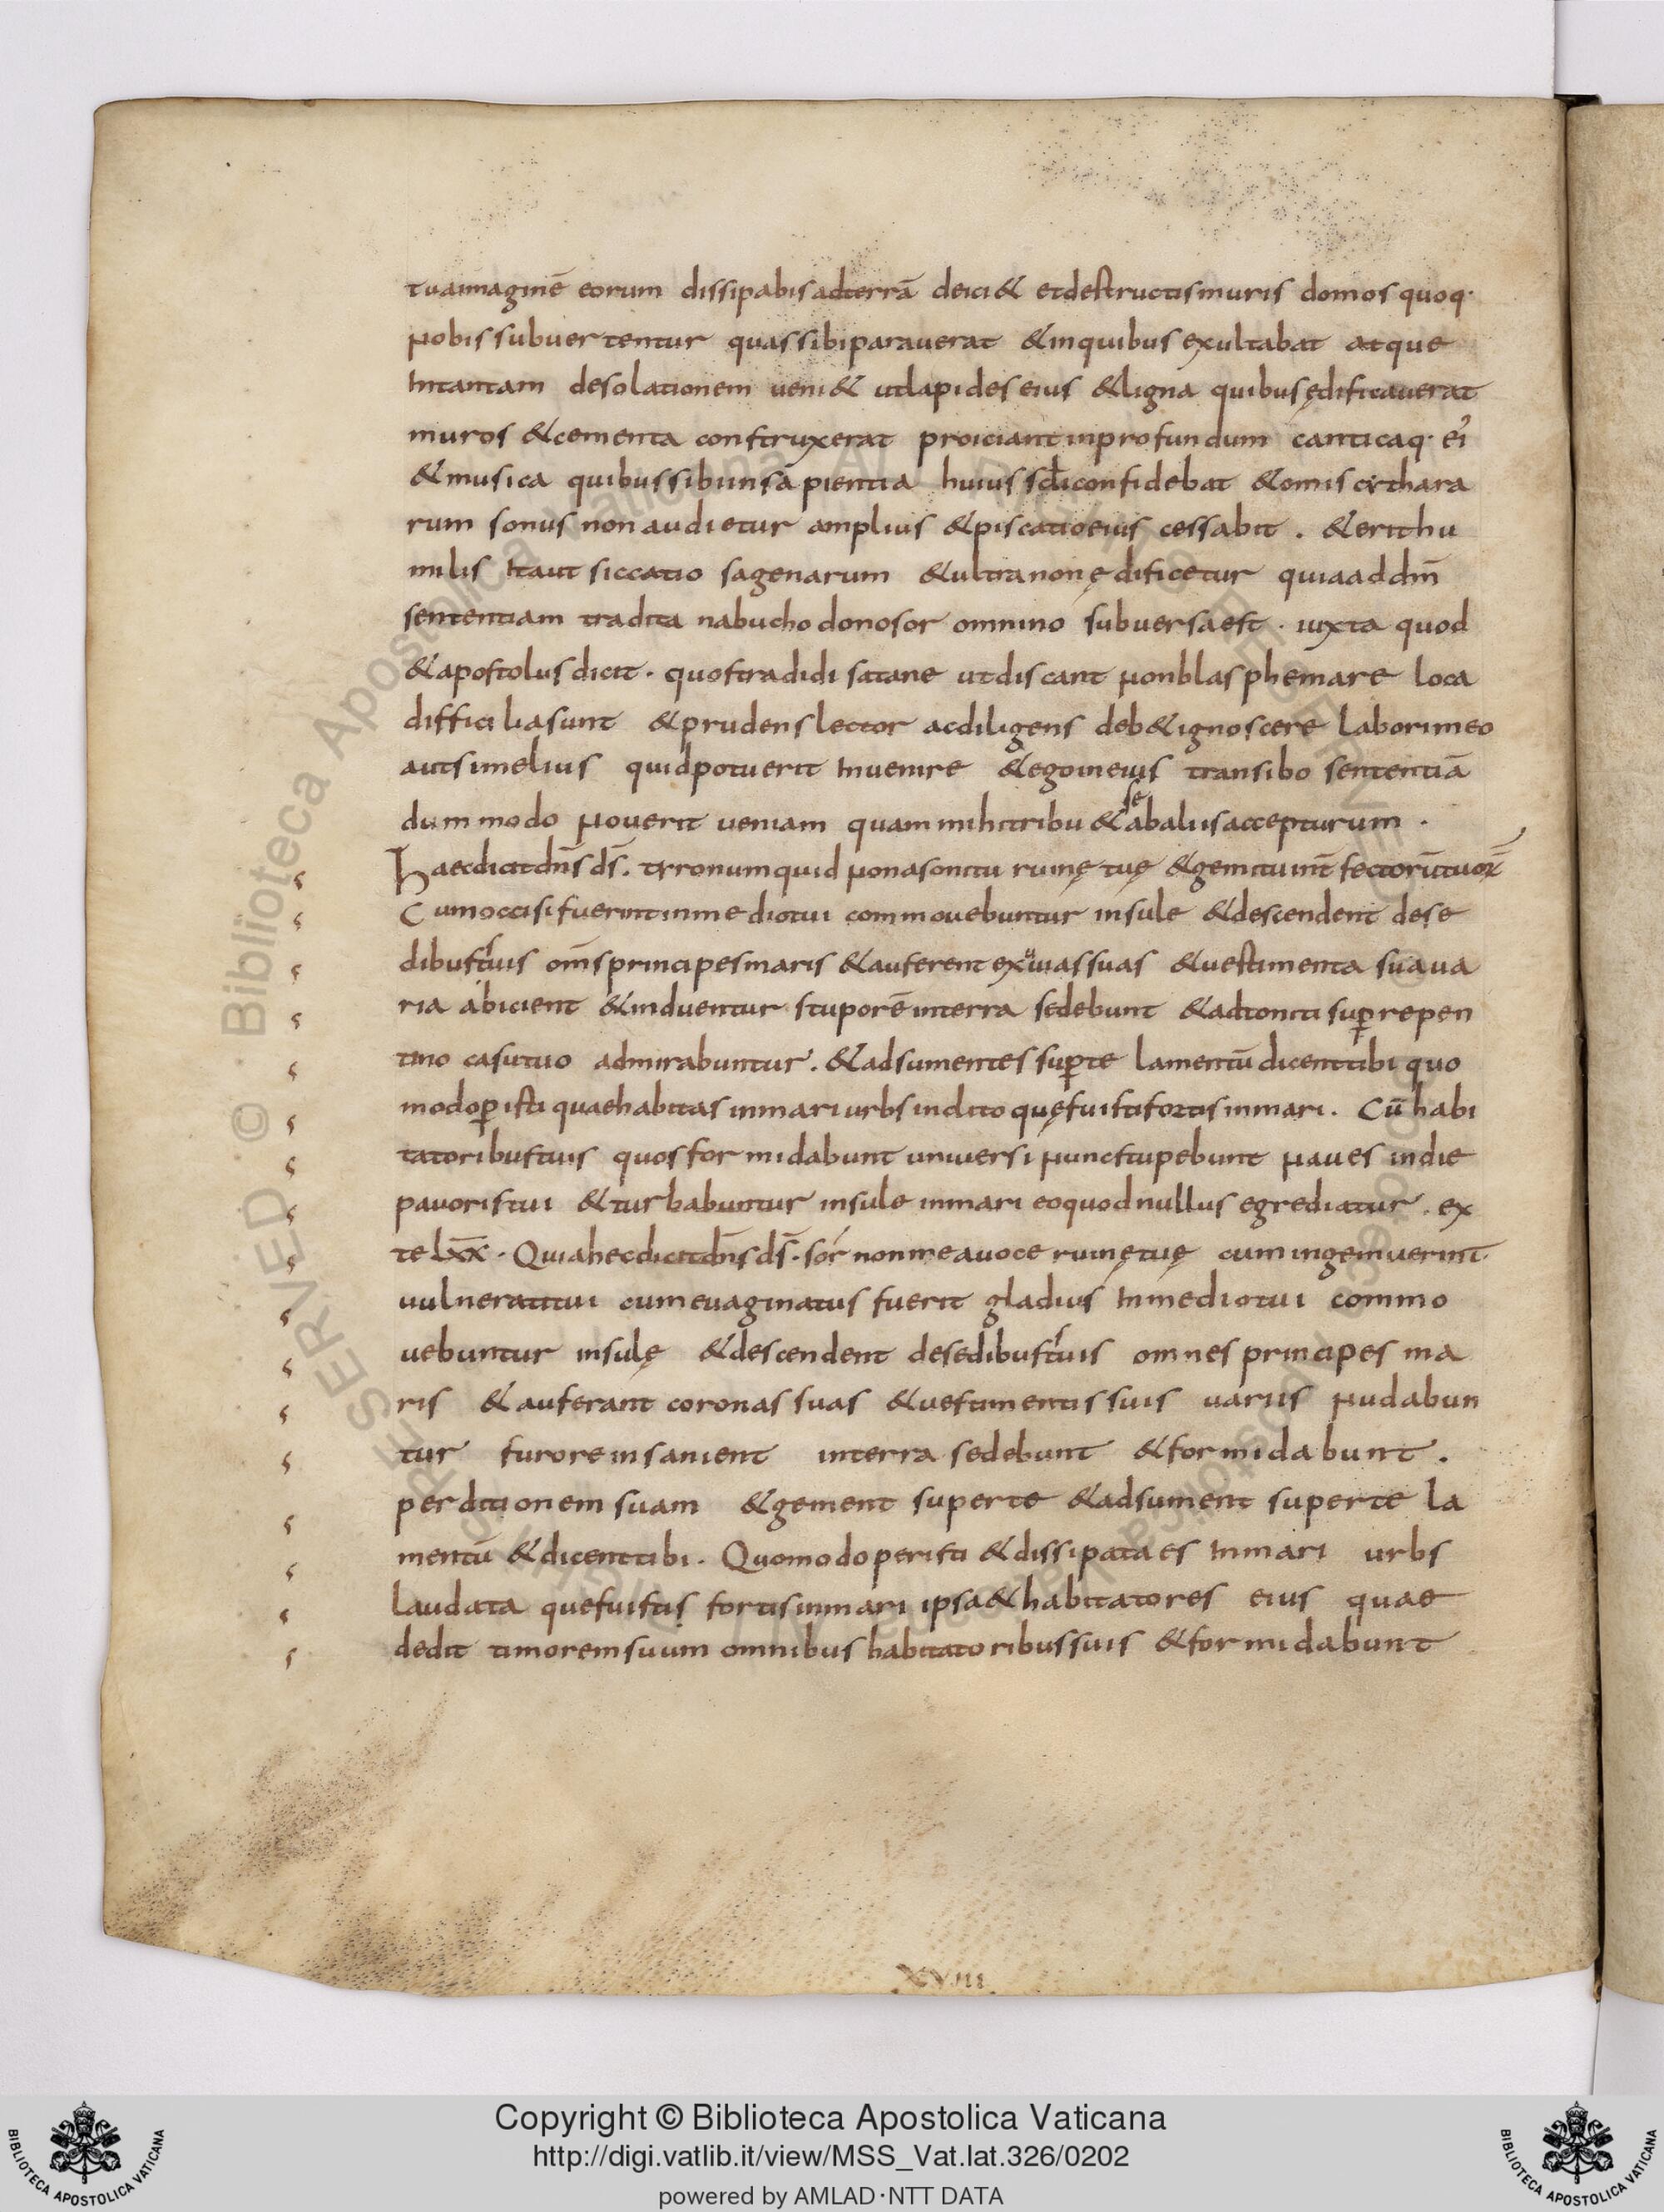 tua imaginē eorum dissipabis ad terrā deici& et destructis muris domos quoq·
nobis subuertentur quas sibi parauerat & in quibus exultabat atque
In tantam desolationem ueni& ut lapides eius & ligna quibus ędificauerat
muros & cementa construxerat proiciant in profundum canticaq· ei'
& musica quibus sibi in sapientia huius scłi confidebat & omis cythara
rum sonus non audietur amplius & piscatio eius cessabit . & erit hu
milis Ita ut siccatio sagenarum & ultra non ędificetur quia ad dn̄i
sententiam tradita nabuchodonosor omnino subuersa est · iuxta quod
& apostolus dicit · quos tradidi satane ut discant non blasphemare loca
difficilia sunt & prudens lector ac diligens deb& ignoscere labori meo
aut si melius quid potuerit Inuenire & ego in eius transibo sententiā
dummodo nouerit ueniam quam mihi tribu& se ab aliis accepturum .
Haec dicit dn̄s ds̄ . tyro numquid non a sonitu ruinę tuę & gemitu int̄fectorū tuorū
Cum occisi fuerint in medio tui commouebuntur insule & descendent de se
dibus tuis om̄s principes maris & auferent exuuias suas & uestimenta sua ua
ria abicient & induentur stuporē in terra sedebunt & adtoniti sup̱ repen
tino casu tuo admirabuntur . & adsumentes sup̱ te lamentū dicent tibi quo
modo p̱isti quae habitas in mari urbs indito quę fuisti fortis in mari . Cū habi
tatoribus tuis quos formidabunt uniuersi nunc stupebunt naues in die
pauoris tui & turbabuntur insule in mari eo quod nullus egrediatur . ex
te lxx̄ . Quia hec dicit dn̄s ds̄ . sor nonne a uoce ruinę tuę cum ingemuerint·
uulnerati tui cum euaginatus fuerit gladius In medio tui commo
uebuntur insulę & descendent de sedibus suis omnes principes ma
ris & auferant coronas suas & uestimentis suis uariis nudabun
tur furore insanient in terra sedebunt & formidabunt .
perditionem suam & gement super te & adsument super te la
mentū & dicent tibi . Quomodo peristi & dissipata es In mari urbs
laudata que fuistis fortis in mari ipsa & habitatores eius quae
dedit timorem suum omnibus habitatoribus suis & formidabunt
XVIII
Copyright © Biblioteca Apostolica Vaticana
http://digi.vatlib.it/view/MSS_Vat.lat.326/0202
powered by AMLAD·NTT DATA